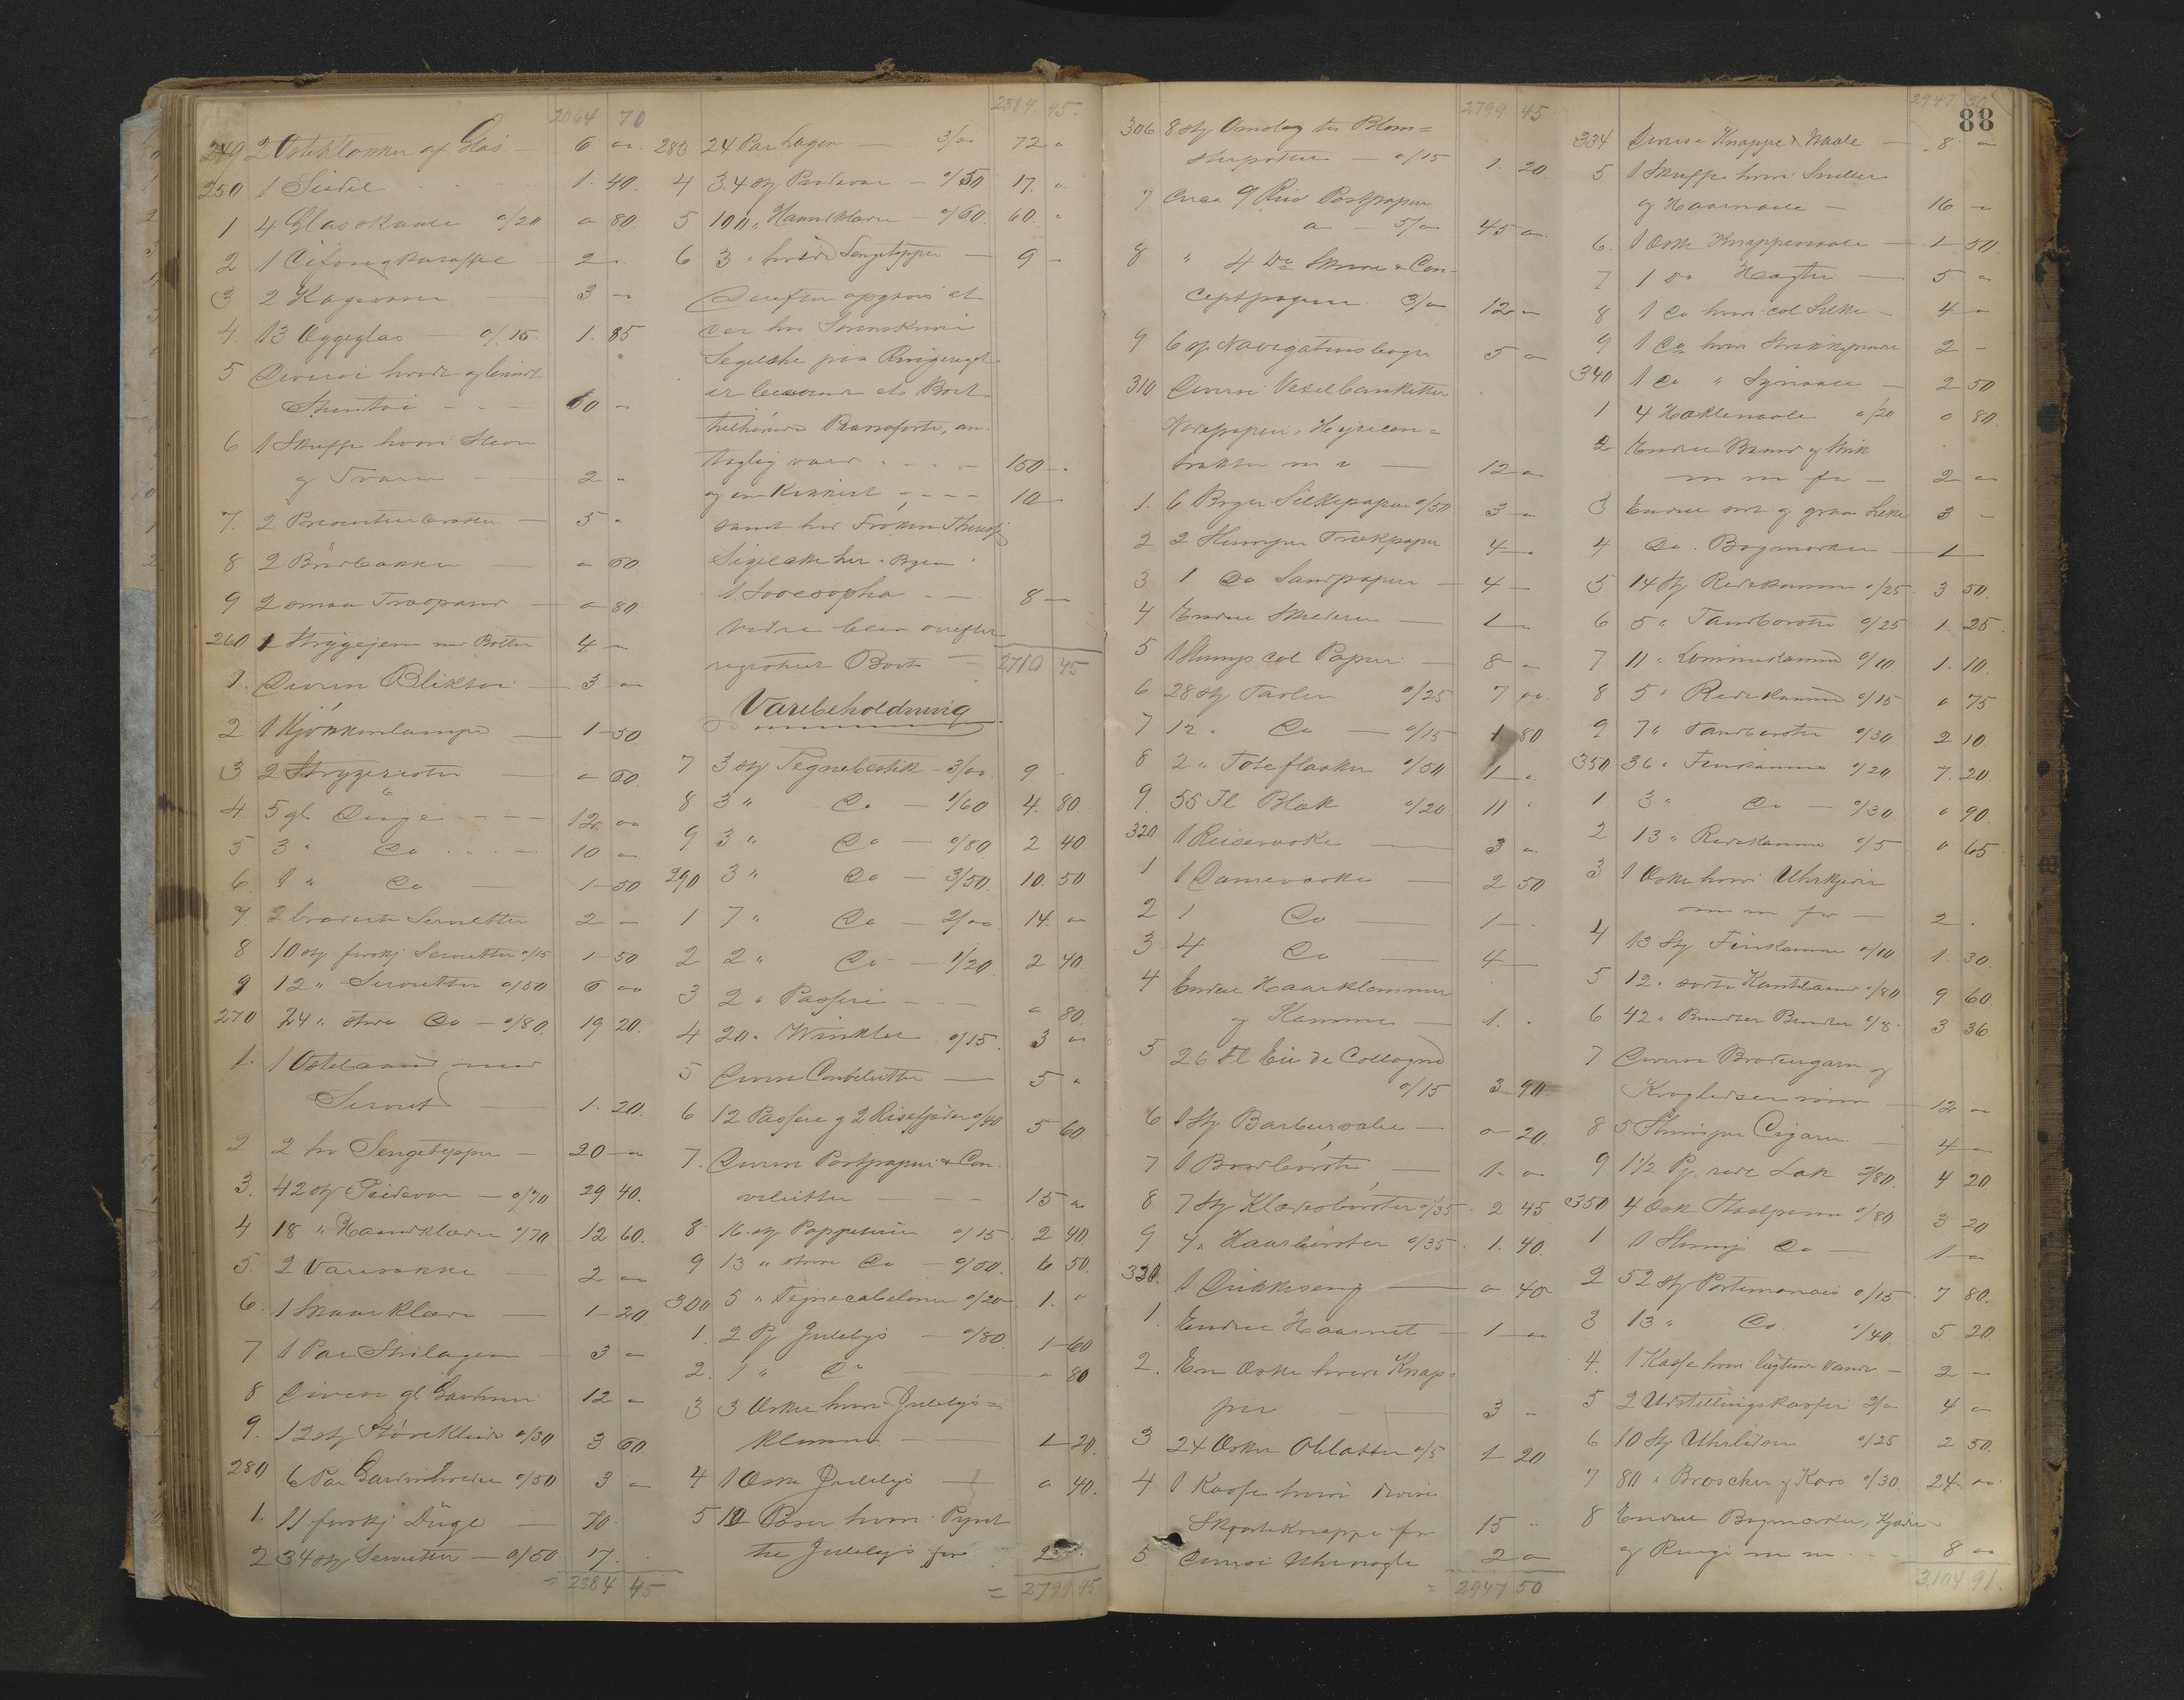 2064 70
249 2 Osteklokker af Glas — 6 "
250 1 Seidel 1. 40.
1 4 Glasskaale o/20 " 80.
2 1 karaffel 2 "
3 2 Kagevaser — 3 "
4. 13 Æggeglas — o/15. 1. 85
5 Diverse hvidt og
Stentøi — 60 "
6 1 Skuffe hvori Skeer
og — 2 "
7. 2 Præsenteerbrætter — 5 "
8 2 Brødbakker — " 60.
9 2 smaa Træspand — " 80.
260 1 Strygejern med Bolter 4 "
1. Diverse Bliktøi — 3 "
2 1 Kjøkkenlampe — 1 50.
3 2 Strygerister — " 60.
4. 5 gl. Duge — 12 "
5 3 " Do 10 "
6. 1 " Do 1 50
7. 2 broderte Servietter 2 "
8 10 stk forskj Servietter o/15 1 50
9 12 " Servietter o/50 6 00
270 24 " store Do — o/80. 19 20.
1. 1 Ostebaand med
Serviet — 1. 20.
2 2 hv Sengetepper — 20 "
3. 42 stk Pudevar — o/70 29 40.
4 18 " Haandklæder o/70 12 60.
5. 2 Varesække — 2 "
6. 1 Skaarklæde 1 20
7 1 Par Strilagen — 3 "
8 Diverse gl. Gardiner 12 "
9. 12 stk Støveklude o/30 3 60.
280 6 Par Gardinbreder o/50 3 "
1. 11 forskj Duge — 70
2 34 stk Servietter — o/50 17.
= 2384 45
2384. 45.
283 24 Par Lagen — 3/00 72 "
4 34 stk Pudevar — o/50 17. "
5 100 " Haandklæder — o/60. 60 "
6 3 " hvide Sengetepper — 9 "
Derefter opgaves at
der hos
Segelcke paa Ringeriget
er beroende et Boet
tilhørende Pianoforte, an-
tagelig værd — 150 "
og en Kikkert — 10 "
samt hos Frøken
Segelcke her i Byen
1 Sovesopha — 8 "
Videre blev derefter
registreret Boets — = 2710 45
Varebeholdning
7 3 stk Tegnebestik — 3/00 9
8 3 " Do — 1/60 4. 80.
9 3 " Do — o/80 2 40
290 3 " Do — 3/50. 10. 50
1 7 " Do — 2/00 14. "
2 2 " Do — 1/20 2 40.
3 2 " Passere — " 80.
4 20 " Winkler o/15. 3 "
5 Diverse Convelutter — 5 "
6 12 Passere og 2 Risefjædre o/40 5 60
7. Diverse Postpapir & Con-
velutter — 15 "
8 16. stk o/15. 2 40.
9 13 " store Do — o/50. 6 50.
300 5 " Tegneschabeloner o/20 1. "
1. 2 Pk Julelys — o/80. 1 60
2. 1 " Do — " 80
3 3 Æsker hvori Julelys=
klemmer — 1 20.
4 1 Æske Julelys — " 40.
5 10 Poser hvori Pynt
til Julelys for 2
= 2799 45
2799 45
306 8 stk Omslag til Blom=
sterpotter — o/15 1. 20
7 Circa 9 Ris Postpapir
a — 5/00 45 "
8 " 4 Do Skrive & Con-
ceptpapir 3/00 12 "
9 6 stk Navigationsbøger 5 "
310 Diverse Vexelblanketter
Notepapir, Hyrecon=
trakter m v — 12 "
1. 6 Bøger Silkepapir o/50 3 "
2 2 Slumper Trækpapir 4 "
3 1 Do Sandpapir — 4 —
4 Endel — 1 "
5 1 Slump col Papir — 8 "
6 28 stk Tavler o/25 7 00
7 12. " Do — o/15 1. 80
8 2 " Toteflasker o/50 1 "
9. 55 Fl Blæk o/20 11 "
320 1 Reisevæske — 3 "
1 1 Damevæske — 2 50
2 1 Do — 1
3 4 Do — 4
4 Endel Haarklemmer
og Kamme — 1. "
5 26 Fl Eau de Cologne
o/15 3 90.
6 1 Stk Barbersæbe — " 20.
7 1 Bordbørste — 1. "
8 7 Stk Klædesbørster o/35 2 45
9 4 " Haarbørster o/35. 1. 40.
330. 1 Dukkeseng — " 40
1. Endel Haarnet — 1 "
2. En Æske hvori Knap=
per — 3 "
3 24 Æsker Oblater o/5 1 20
4 1 Kasse hvori diverse
Skjorteknapper for 15 "
5 Diverse Uhrnøgler 2 "
= 2947 50
2947 50
88
334 Diverse Knapper & Naale — 8 "
5 1 Skuffe hvori Sneller
og Haarnaale — 16 "
6. 1 Æske Knappenaale — 1 50
7 1 Do Hægter — 5 "
8 1 Do hvori col Silke — 4 "
9 1 Do hvori Strikkepinder 2 "
340 1 Do " Synaale — 2 50
1 4 Heklenaale o/20 " 80.
2 Endel Baand og Strik
m m for — 2 "
3 Endel sort og graa Silke 3 —
4 Do. Bogmærker — 1
5 14 Stk Redekamme o/25 3 50.
6 5 " Tandbørster o/25 1. 25.
7 11 " Lommekamme o/10 1. 10.
8 5 " Redekamme o/15 " 75
9 7 " Tandbørster o/30 2 10.
350 36 " Finkamme o/20 7. 20
1 3 " Do — o/30. " 90.
2 13 " Redekamme o/5 " 65
3 1 Æske hvori Uhrkjæder
m m for — 2
4 13 Stk Finkamme o/10 1. 30.
5 12 " sorte Kantebaand o/80 9 60.
6 42 " Bundter Bændler o/8. 3 36
7 Diverse Brodergarn og
— 12 "
8 5 Slumper Cigarer — 4 "
9. 1½ Pk. røde Lak 2/80. 4 20
350 4 Æsk Staalpenne o/80 3 20
1 1 Slump Do — 1 "
2 52 stk Portemonais o/15 7 80.
3 13 " Do. o/40 5 20
4. 1 Kasse hvori — 2 —
5 2 Udstillingskasser 2/00 4 "
6 10 Stk o/25 2 50.
7 80 " Broscher & Kors o/30. 24 00
8 Endel Bogmærker, Kjæder
og Ringe m m 8 00
3104 91.